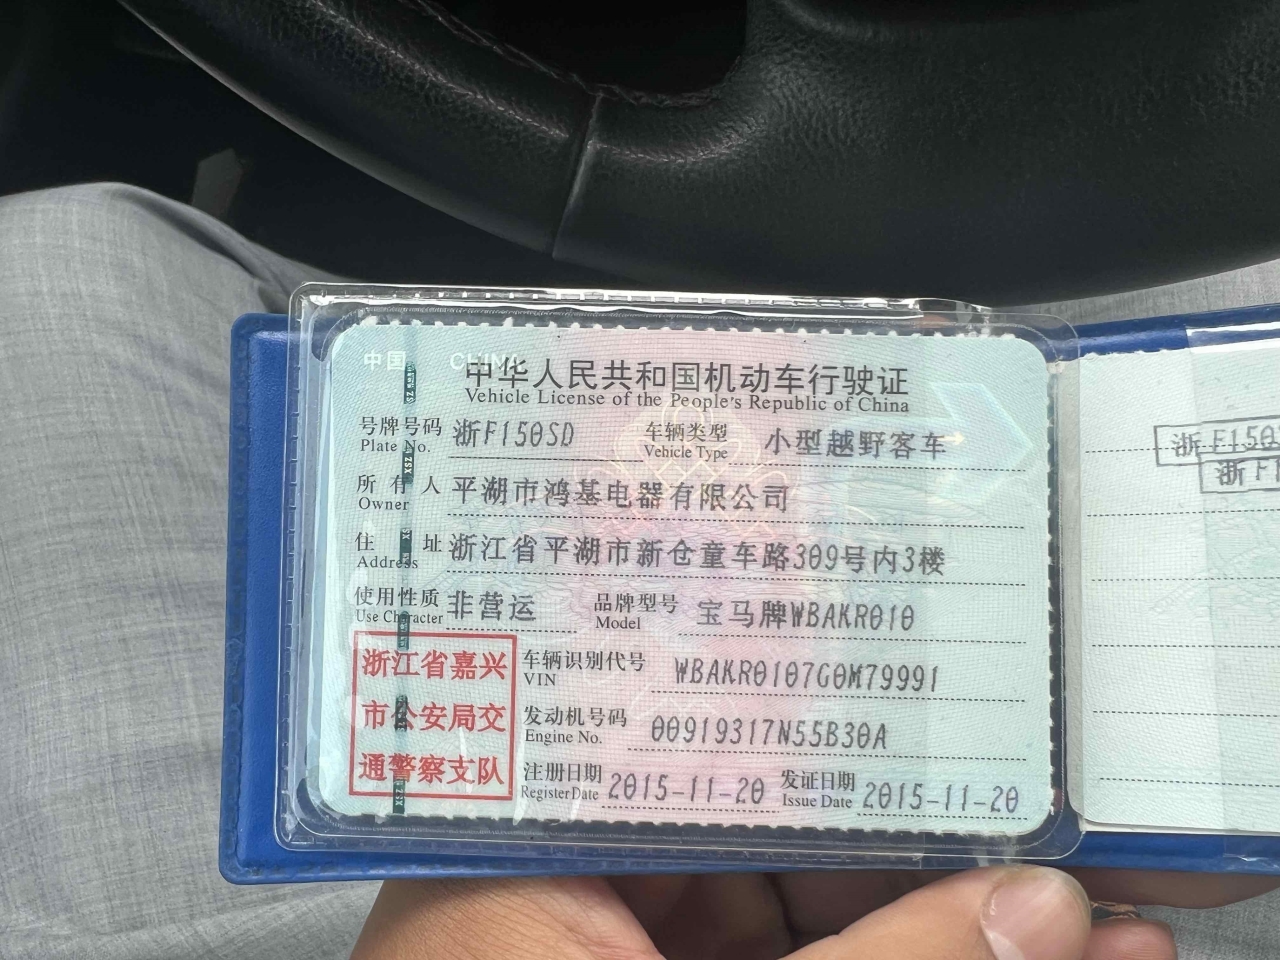 中国 CHINA
中华人民共和国机动车行驶证
Vehicle License of the People's Republic of China
号牌号码 浙F150SD 车辆类型 小型越野客车
Plate No. Vehicle Type
所有人 平湖市鸿基电器有限公司
Owner
住址 浙江省平湖市新仓童车路309号内3楼
Address
使用性质 非营运 品牌型号 宝马牌WBAKR010
Use Character Model
浙江省嘉兴
市公安局交
通警察支队
车辆识别代号 WBAKR0107G0M79991
VIN
发动机号码 00919317N55B30A
Engine No.
注册日期 2015-11-20 发证日期 2015-11-20
Register Date Issue Date
浙F150
浙F